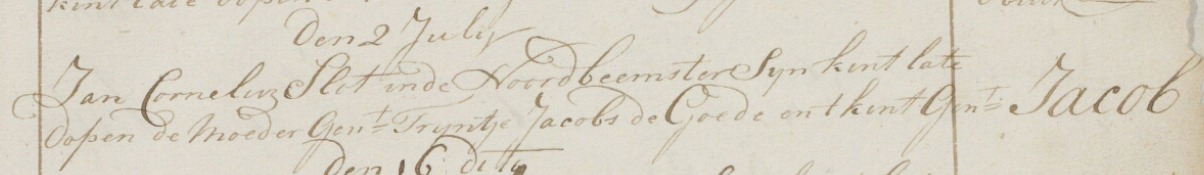 kint late dopen
Den 2 July
Jan Cornelisz Slot inde Noordbeemster Syn kint late
dopen de Moeder Gent: Tryntje Jacobs de Goede en t kint Gent: Jacob
den 16 dito